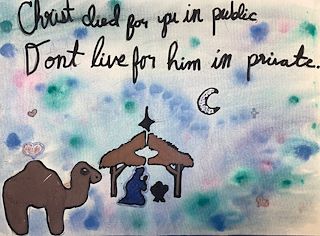 Christ died for you in public
Dont live for him in private.